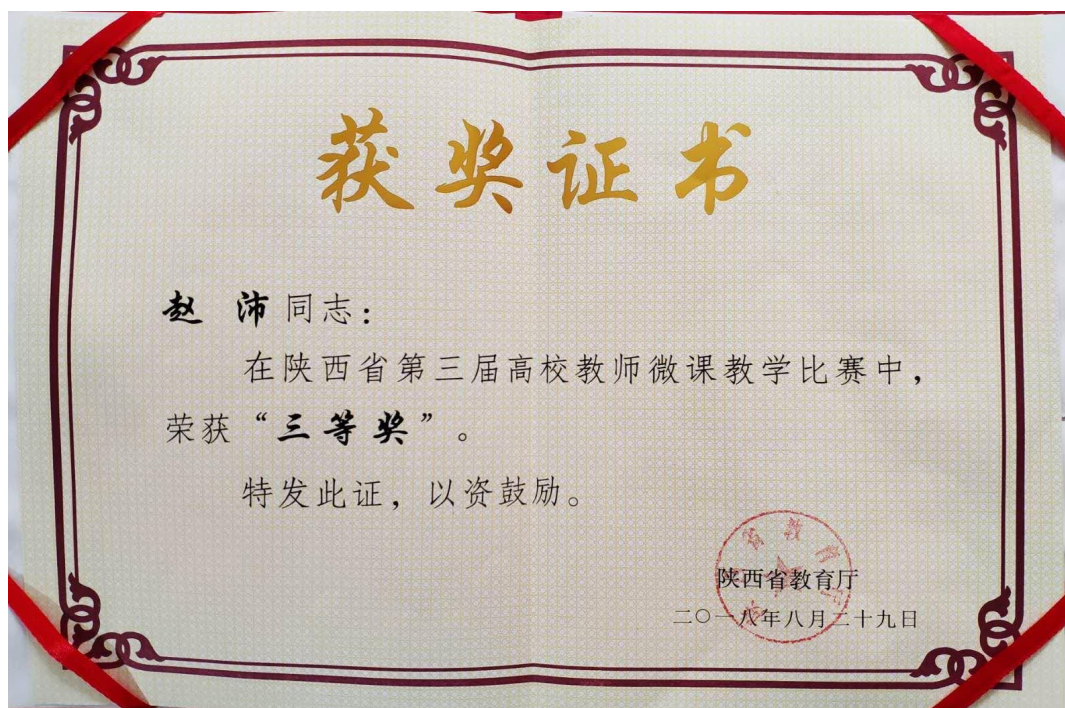 获奖证书
赵 沛同志：
在陕西省第三届高校教师微课教学比赛中，
荣获“三等奖”。
特发此证，以资鼓励。
陕西省教育厅
二〇一八年八月二十九日